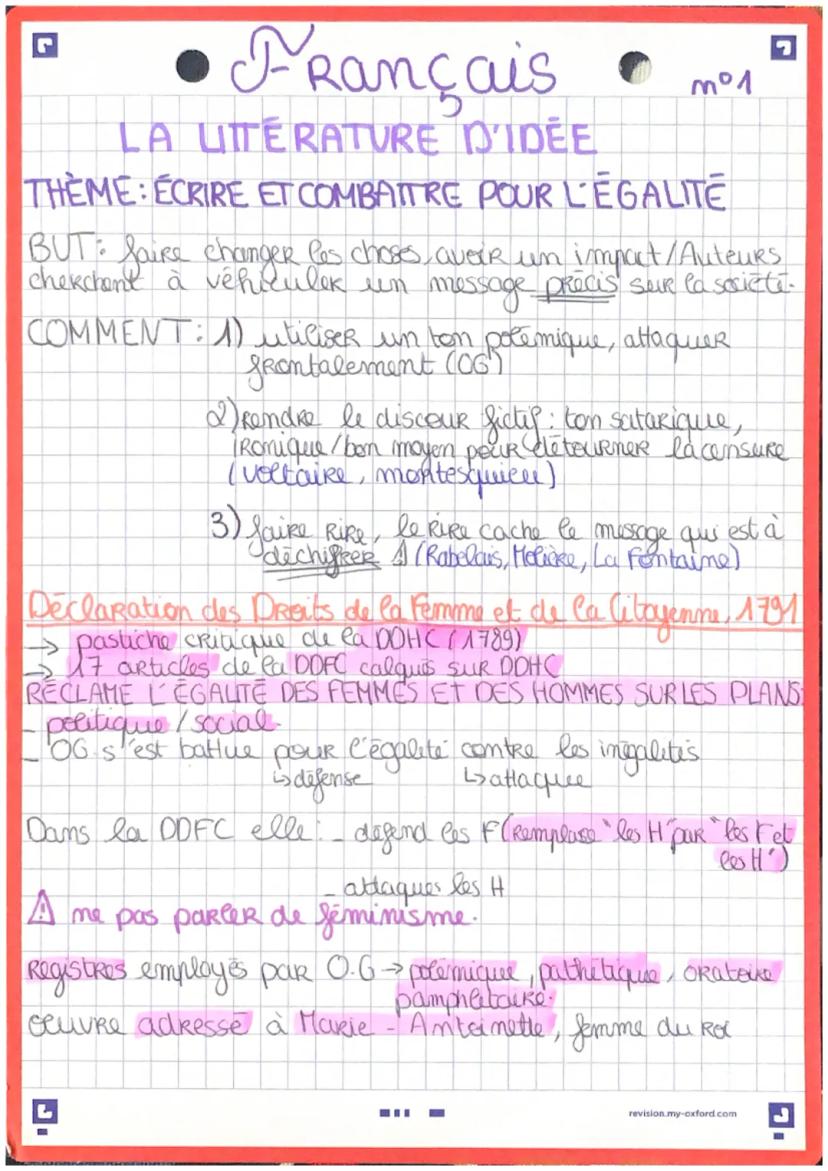 Français
n°1
LA LITTÉRATURE D'IDÉE
THÈME: ÉCRIRE ET COMBATTRE POUR L'ÉGALITÉ
BUT: faire changer les choses, avoir un impact/Auteurs
cherchent à véhiculer un message précis sur la société.
COMMENT: 1) utiliser un ton polémique, attaquer
frontalement (OG)
2) rendre le discour fictif: ton satarique,
ironique/bon moyen pour détourner la censure
(voltaire, montesquieu)
3) faire rire, le rire cache le message qui est à
déchiffrer ⚠ (Rabelais, Molière, La Fontaine)
Déclaration des Droits de la Femme et de la Citoyenne, 1791
→ pastiche critique de la DDHC (1789)
→ 17 articles de la DDFC calqués sur DDHC
RÉCLAME L'ÉGALITÉ DES FEMMES ET DES HOMMES SUR LES PLANS:
- politique / social.
- OG s'est battue pour l'égalité contre les inégalités
↳ défense ↳ attaque
Dans la DDFC elle: - défend les F (remplace "les H" par "les F et
les H")
- attaques les H
⚠ ne pas parler de féminisme.
Registres employés par O.G → polémique, pathétique, oratoire
pamphlétaire.
œuvre adressé à Marie-Antoinette, femme du Roi
revision.my-oxford.com